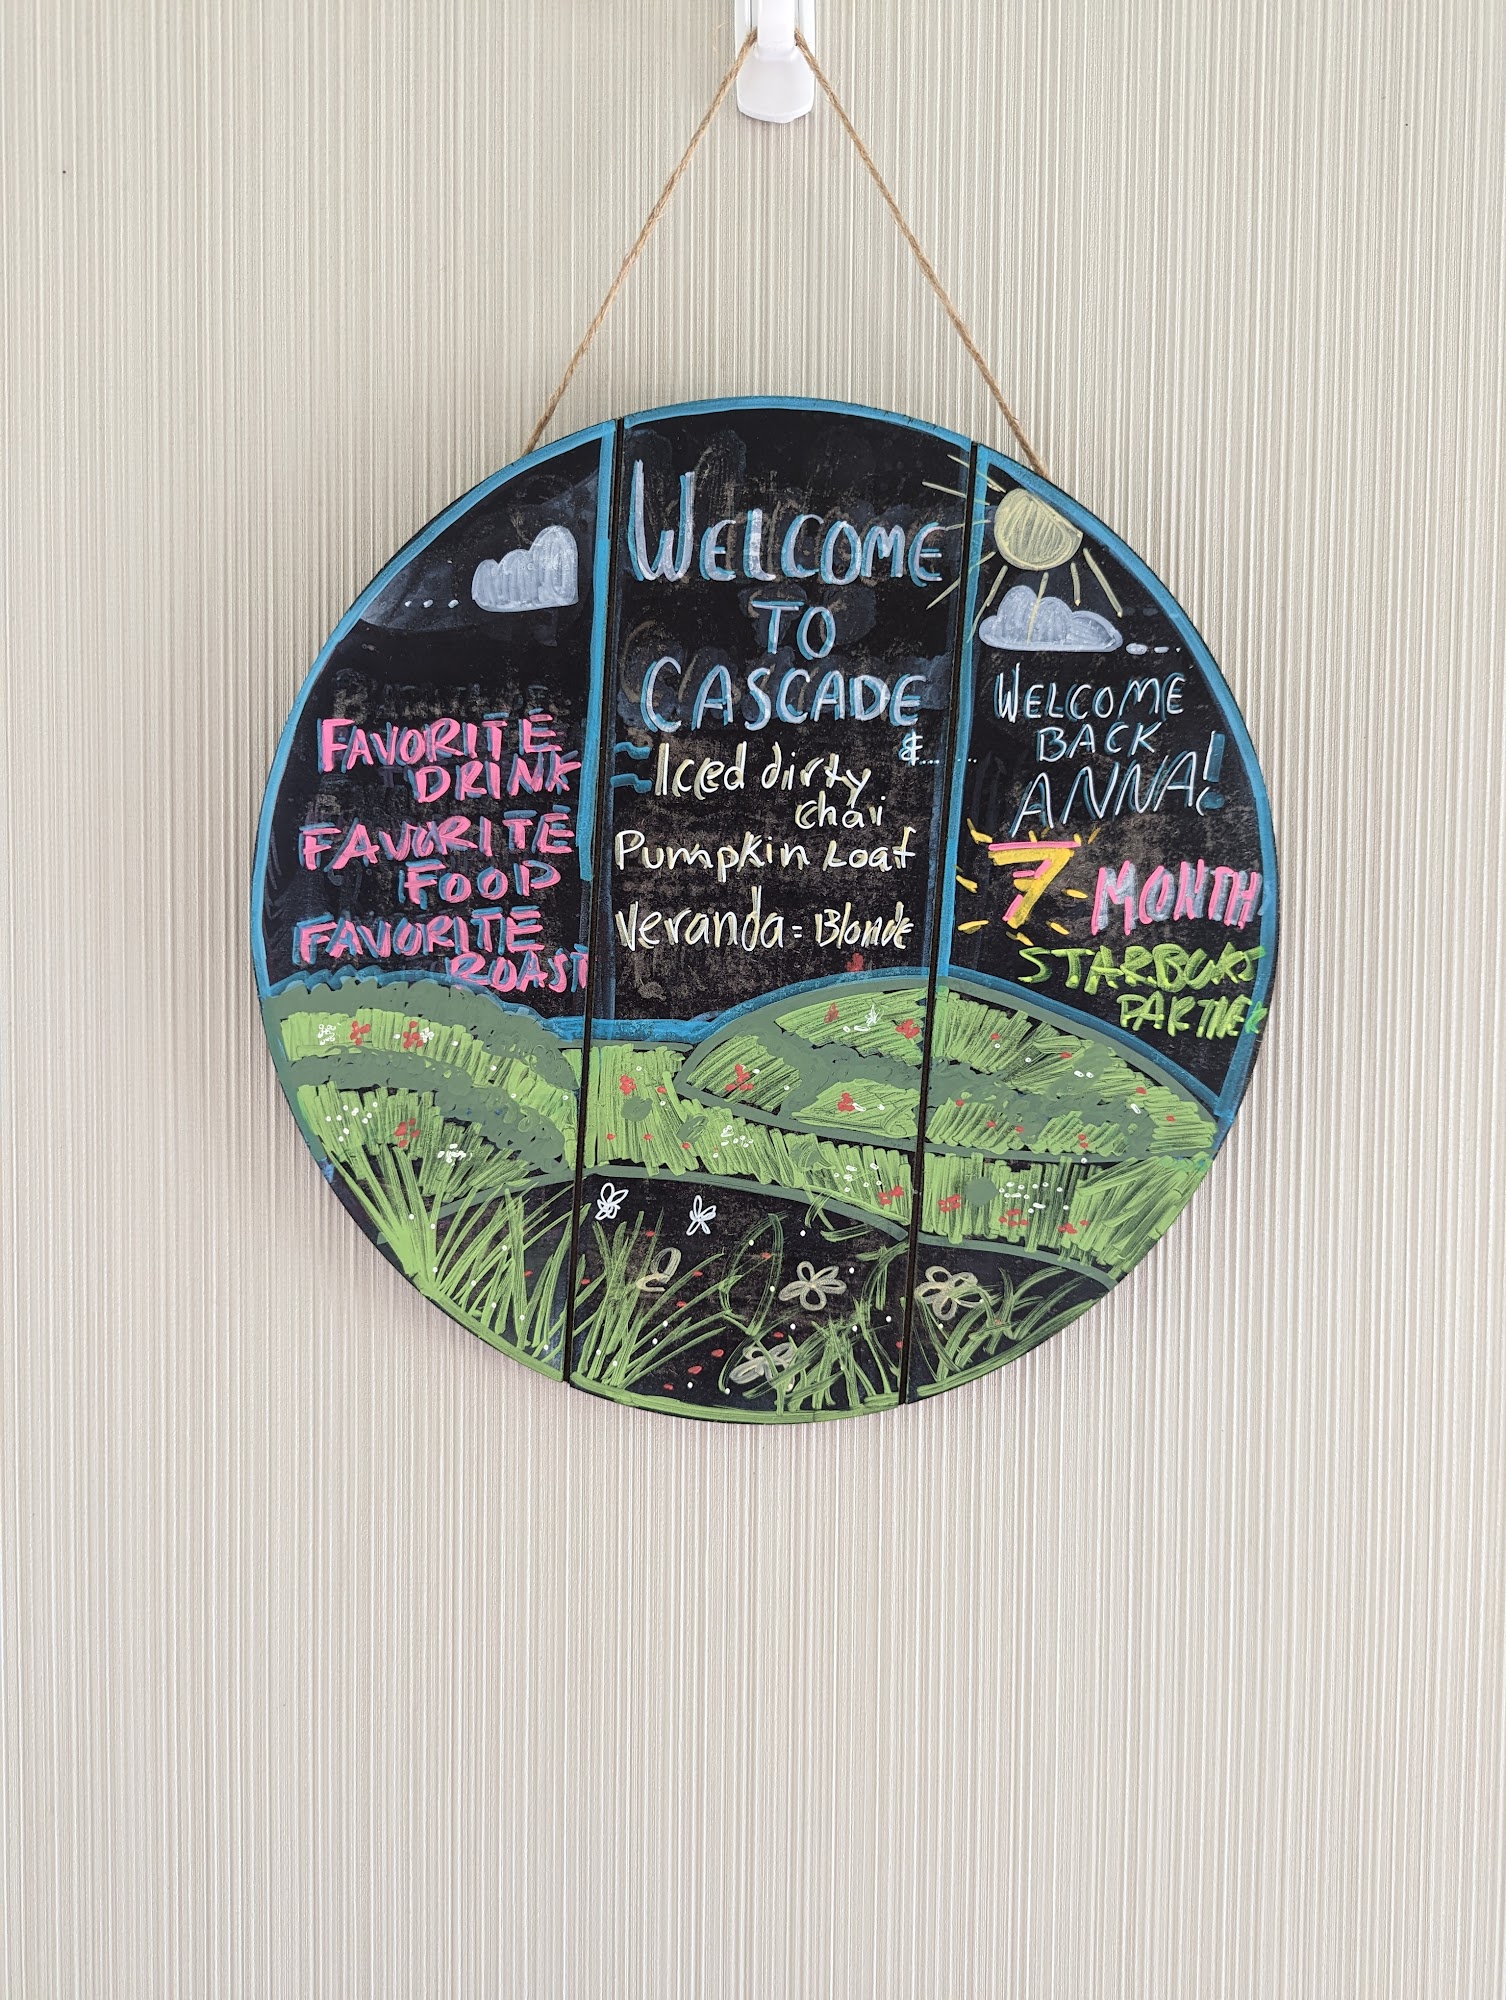 WELCOME
TO
CASCADE
&........
FAVORITE
DRINK
Iced dirty
chai
FAVORITE
FOOD
Pumpkin Loaf
FAVORITE
ROAST
Veranda = Blonde
WELCOME
BACK
ANNA!
7 MONTH
STARBUKS
PARTNER